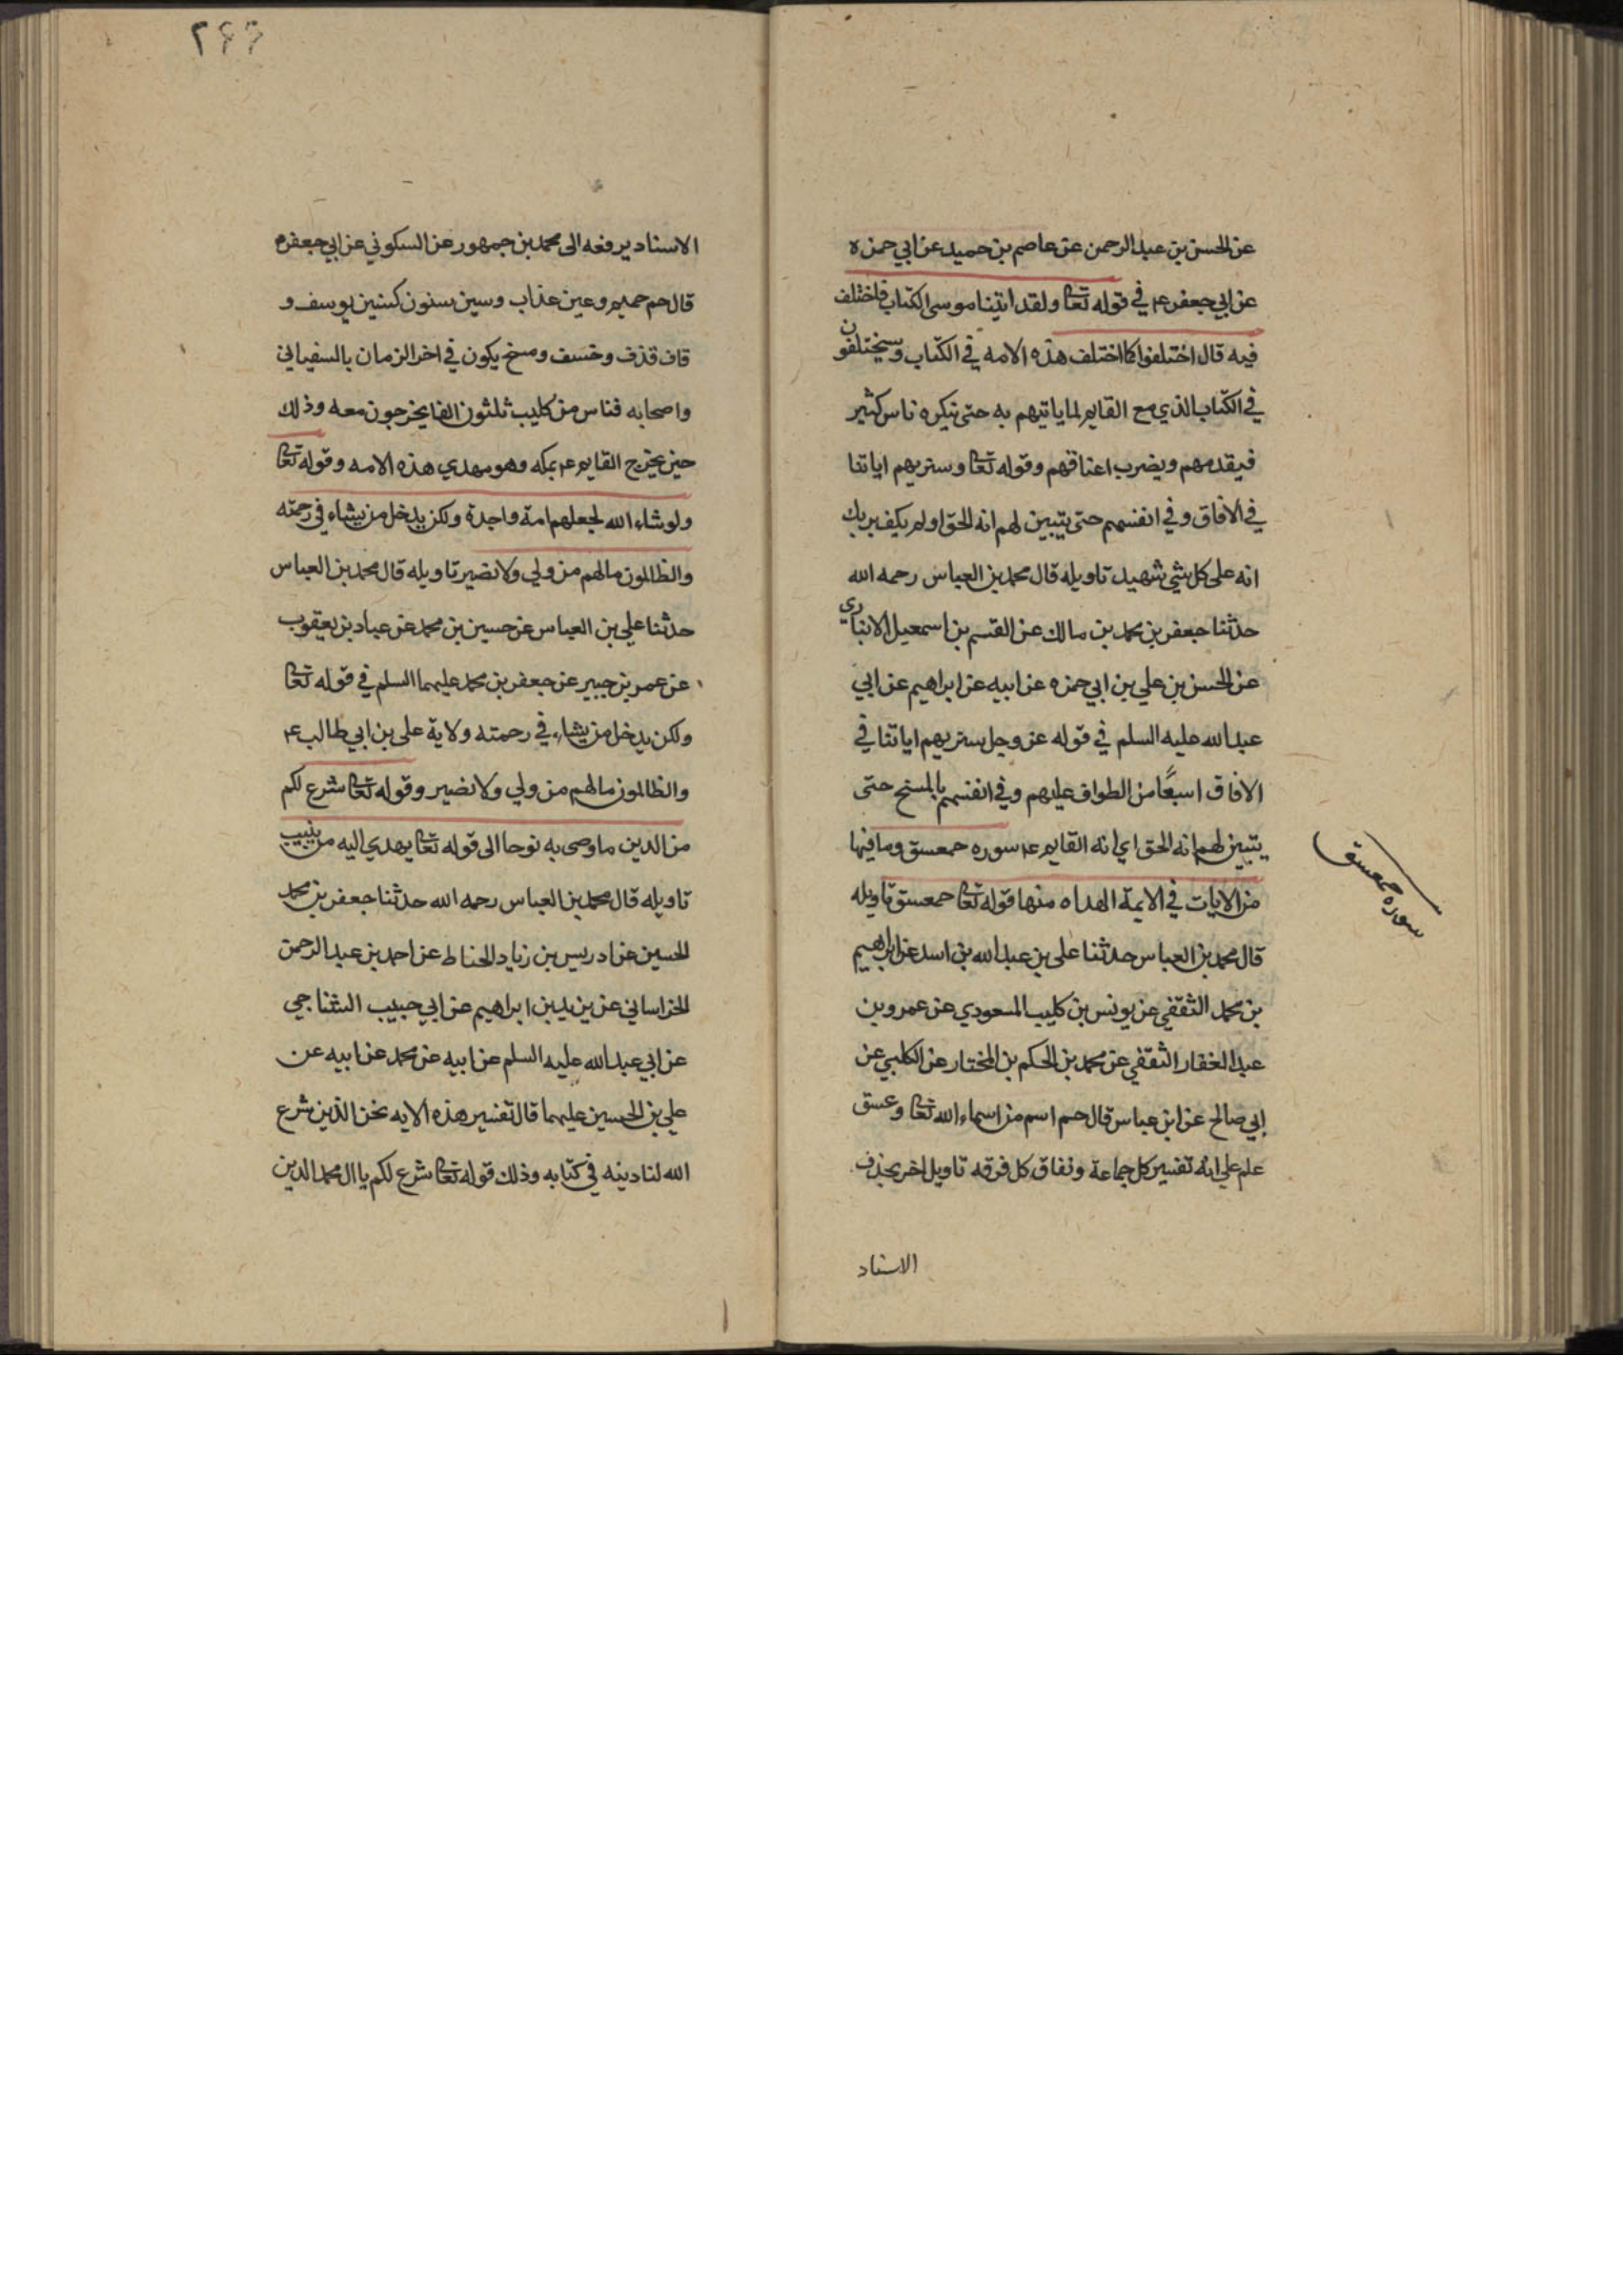 عن الحسن بن عبد الرحمن عن عاصم بن حميد عن ابي حمزه
عن ابي جعفر ع في قوله تعا ولقد اتينا موسى الكتاب فاختلف
فيه قال اختلفوا كما اختلف هذه الامه في الكتاب وسيختلفون
في الكتاب الذي مع القايم لما ياتيهم به حتى ينكره ناس كثير
فيقدمهم ويضرب اعناقهم وقوله تعا وسنريهم اياتنا
في الافاق وفي انفسهم حتى يتبين لهم انه الحق اولم يكف بربك
انه على كل شي شهيد تاويله قال محمد بن العباس رحمه الله
حدثنا جعفر بن محمد بن مالك عن القسم بن اسمعيل الانباري
عن الحسن بن علي بن ابي حمزه عن ابيه عن ابراهيم عن ابي
عبد الله عليه السلم في قوله عز وجل سنريهم اياتنا في
الافاق اسبعًا من الطواف عليهم وفي انفسهم بالمسخ حتى
يتبين لهم انه الحق اي انه القايم ع سوره حمعسق وما فيها
من الايات في الايمة الهداه منها قوله تعا حمعسق تاويله
قال محمد بن العباس حدثنا على بن عبد الله بن اسد عن ابراهيم
بن محمد الثقفي عن يونس بن كليب المسعودي عن عمرو بن
عبد الغفار الثقفي عن محمد بن الحكم بن المختار عن الكلبي عن
ابي صالح عن ابن عباس قال حم اسم من اسماء الله تعا وعسق
علم علي انه تفسير كل جماعة ونفاق كل فرقه تاويل اخر بحذف
الاسناد
سوره حمعسق
٢٦٦
الاسناد يرفعه الى محمد بن جمهور عن السكوني عن ابي جعفر م
قال حم حميم وعين عذاب وسين سنون كسنين يوسف و
قاف قذف وخسف ومسخ يكون في اخر الزمان بالسفياني
واصحابه فناس من كليب ثلثون الفا يخرجون معه وذلك
حين يخرج القايم ع بمكه وهو مهدي هذه الامه وقوله تعا
ولو شاء الله لجعلهم امة واحدة ولكن يدخل من يشاء في رحمته
والظالمون ما لهم من ولي ولا نصير تاويله قال محمد بن العباس
حدثنا علي بن العباس عن حسين بن محمد عن عباد بن يعقوب
عن عمر بن جبير عن جعفر بن محمد عليهما السلم في قوله تعا
ولكن يدخل من يشاء في رحمته ولاية على بن ابي طالب ع
والظالمون ما لهم من ولي ولا نصير وقوله تعا شرع لكم
من الدين ما وصى به نوحا الى قوله تعا يهدي اليه من ينيب
تاويله قال محمد بن العباس رحمه الله حدثنا جعفر بن محمد
الحسين عن ادريس بن زياد الحناط عن احمد بن عبد الرحمن
الخراساني عن يزيد بن ابراهيم عن ابي حبيب الشناجي
عن ابي عبد الله عليه السلم عن ابيه عن محمد عن ابيه عن
علي بن الحسين عليهما قال تفسير هذه الايه نحن الذين شرع
الله لنا دينه في كتابه وذلك قوله تعا شرع لكم يا ال محمد الدين